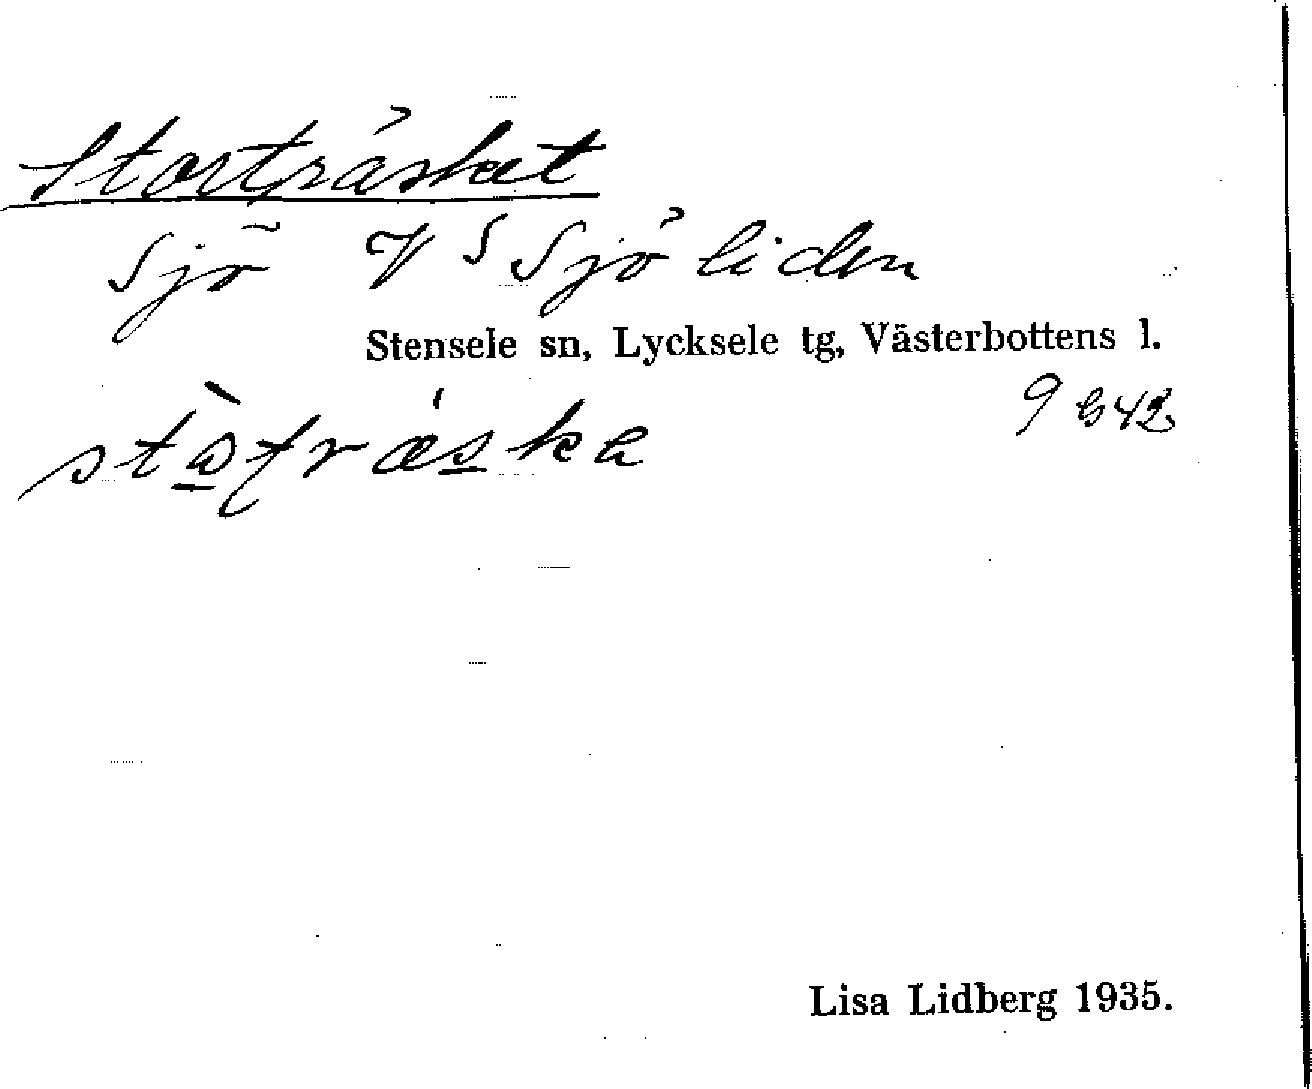 Storträsket
Sjö V S Sjöliden
Stensele sn, Lycksele tg, Västerbottens l.
Lisa Lidberg 1935.